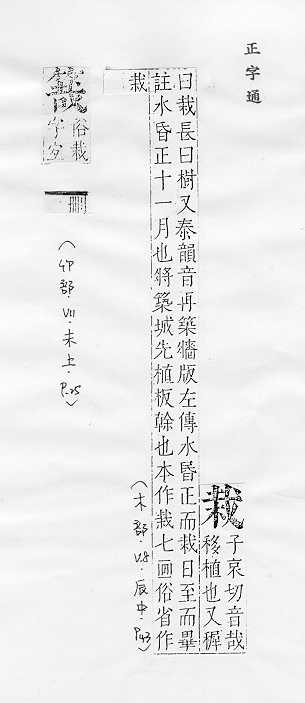 正字通
栽
子哀切音哉
移植也又穉
曰栽長曰樹又泰韻音再築牆版左傳水昏正而栽日至而畢
註水昏正十一月也將築城先植板榦也本作栽七画俗省作
栽
(木部.V.8.辰中.P.43)
俗栽
字
(竹部.VII.未上.P.25)